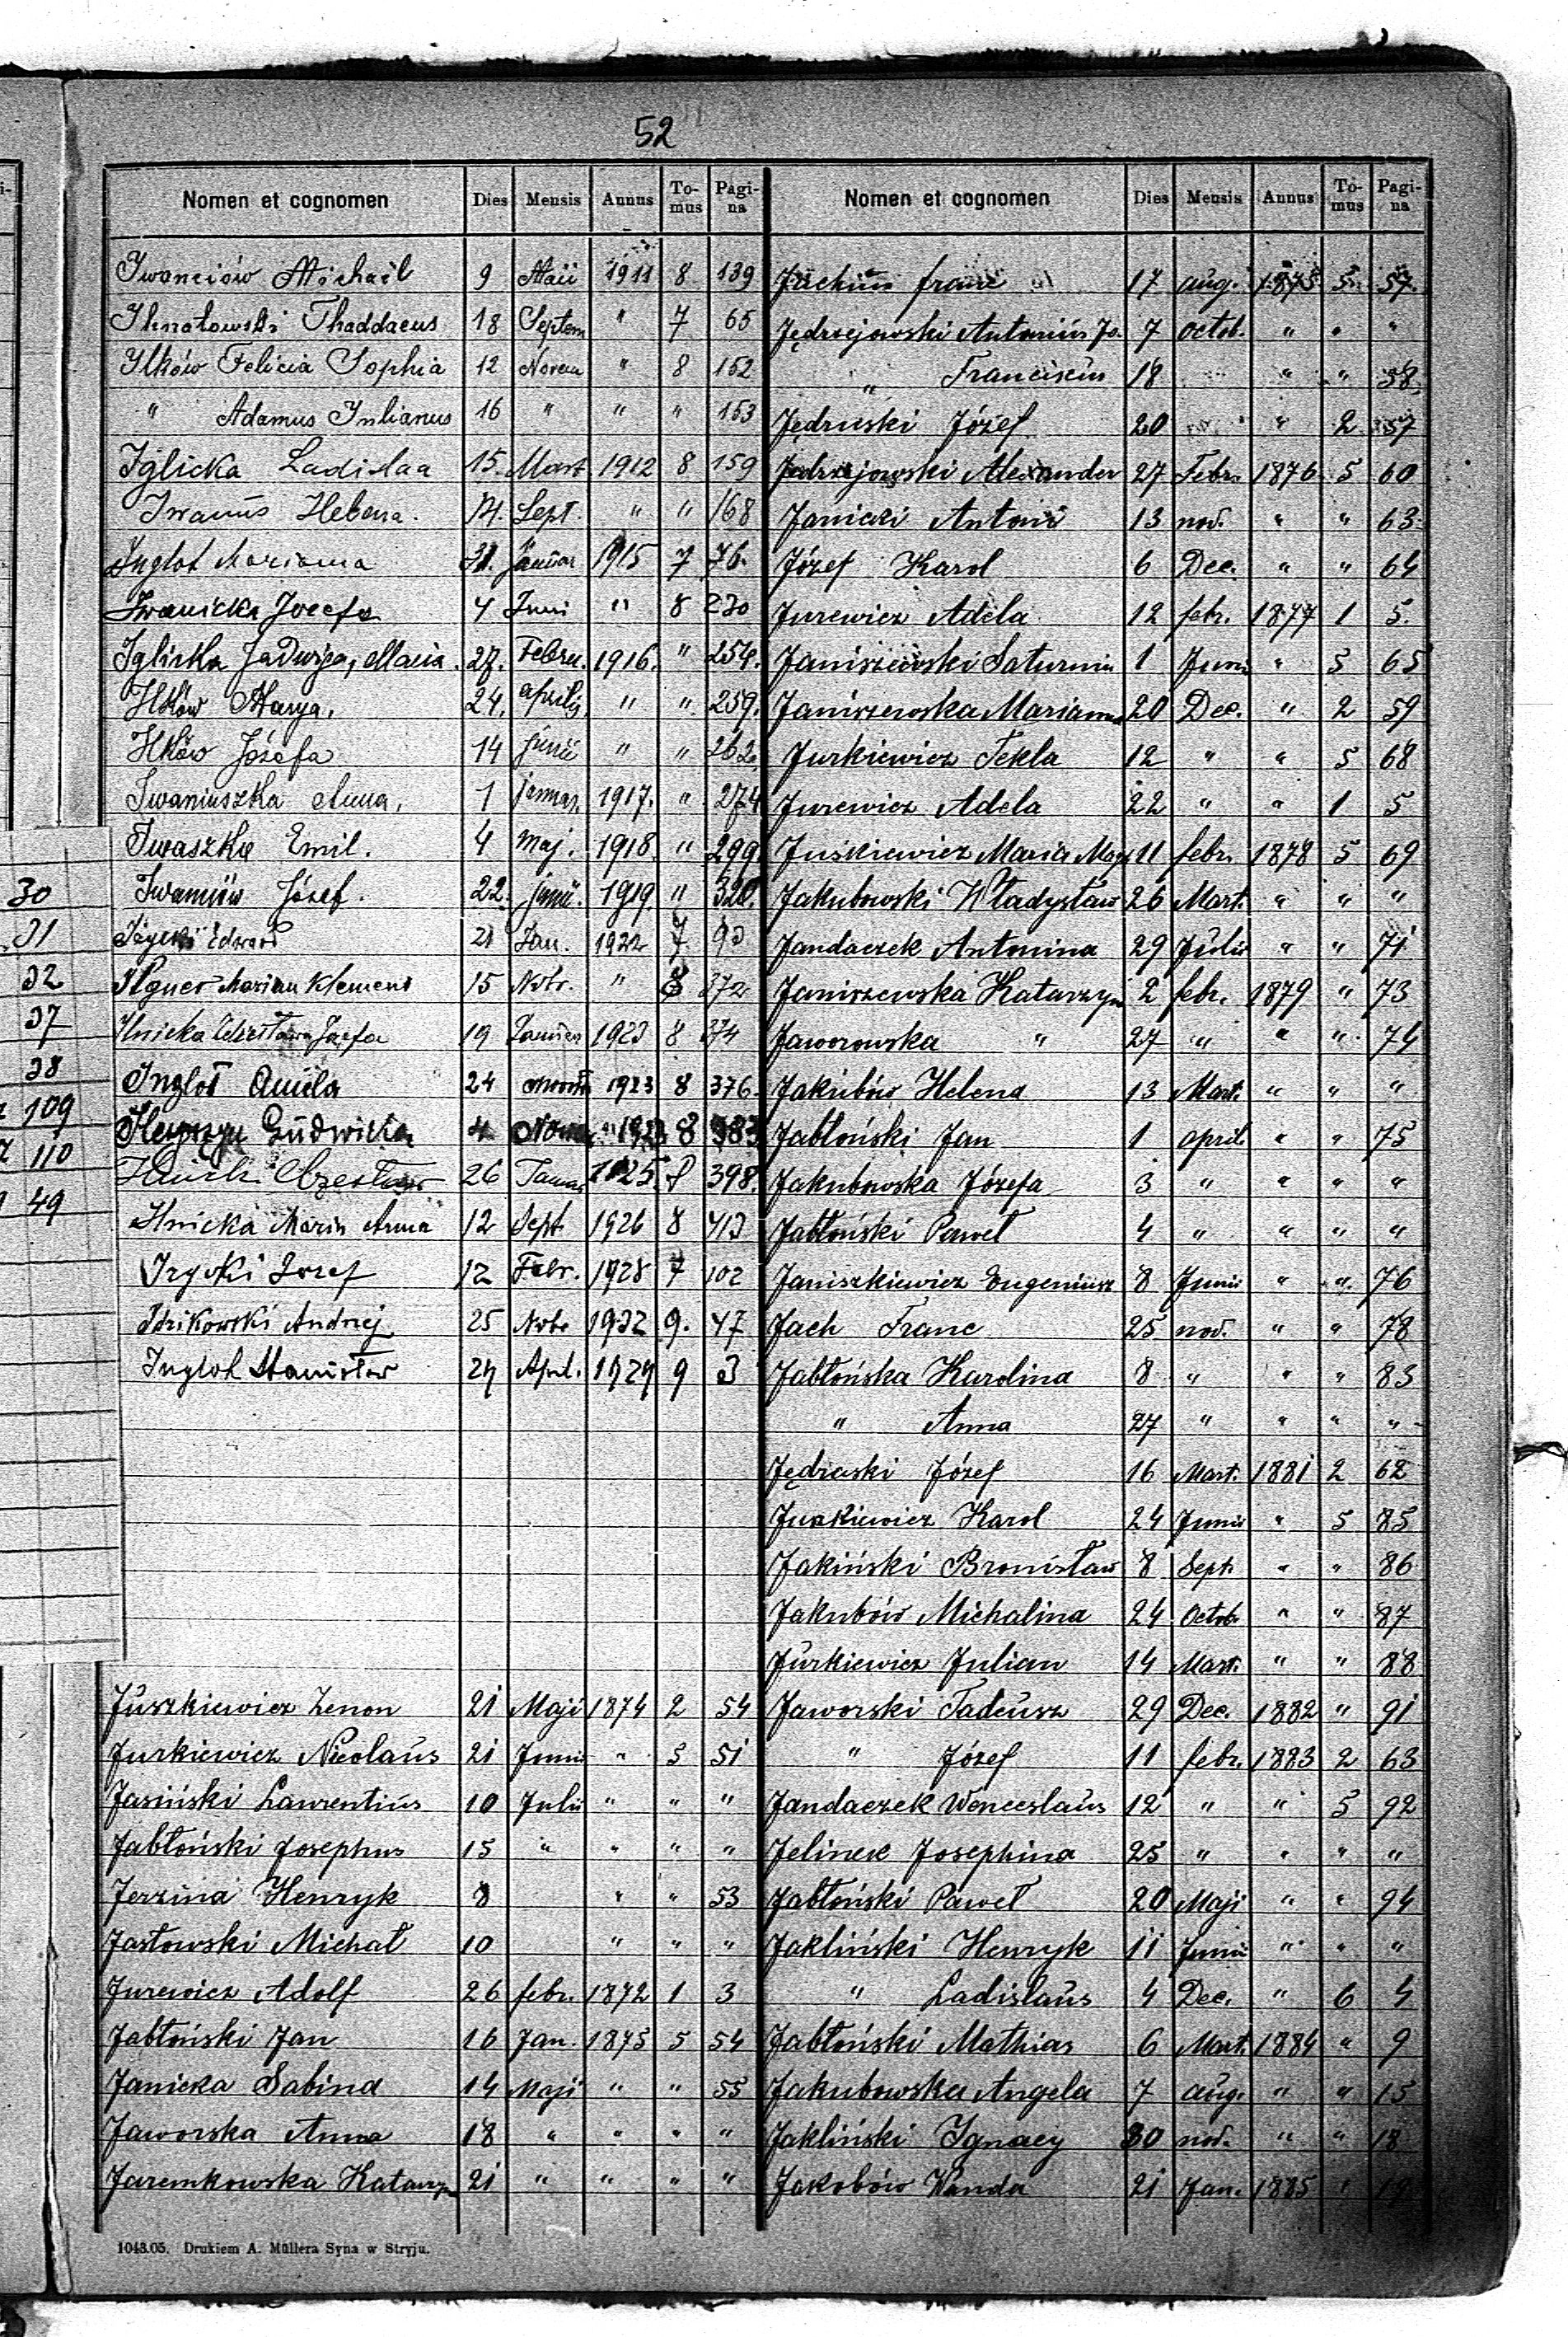 52
Nomen et cognomen Dies Mensis Annus To-mus Pagi-na
Iwanciów Michaël 9 Maii 1911 8 139
Ihnatowski Thaddaeus 18 Septem " 7 65
Ilków Felicia Sophia 12 Novem " 8 152
" Adamus Julianus 16 " " " 153
Iglicka Ladislaa 15. Mart. 1912 8 159
Iwanús Helena. 14. Sept. " " 168
Inglot Marianna 31. Januar 1915 7 76.
Iwanicka Josefa 4 Juni " 8 230
Iglicka Jadwiga, Maria. 27. Febru. 1916. " 254.
Ilków Marya. 24. aprilis " " 259.
Ilków Józefa 14 junii " " 262.
Iwaniuszka Anna, 1 januar. 1917. " 274
Iwaszko Emil. 4 maj. 1918. " 299.
Iwanciów Józef. 22. junii. 1919. "
Edward 21 Jan. 1922 7 93
Marian Klemens 15 Nobr. " 8 372
Ilnicka Józefa 19 1923 8 374
Inglot Aniela 24 1923 8 376.
Ludwika 4 8 383
Ilnicki Czesław 26 Januar 1925. 8 398.
Ilnicka Maria Anna 12 Sept. 1926 8 413
Irycki Jozef 12 Febr. 1928 7 102
Idzikowski Andrzej 25 Nobr 1932 9. 47
Inglot Stanisław 24 Apl. 1929 9 3
Juszkiewicz Zenon 21 Maji 1874 2 54
Jurkiewicz Nicolaús 21 Junii " 5 51
Jasiński Laurentiús 10 Julii " " "
Jabłoński Josephus 15 " " " "
Jerzina Henryk 8 " " 53
Jastowski Michał 10 " " "
Jurewicz Adolf 26 febr. 1872 1 3
Jabłoński Jan 16 Jan. 1875 5 54
Janicka Sabina 14 Maji " " 55
Jaworska Anna 18 " " " "
Jaremkowska Katarzyna 21 " " " "
1043.05. Drukiem A. Müllera Syna w Stryju.
Nomen et cognomen Dies Mensis Annus To-mus Pagi-na
Jachim franc 17 aug. 1875 5. 57.
Jędrzejowski Antoniús Jo. 7 octob. " " "
" Franciscus 18 " " 58.
Jędruski Józef 20 " 2 57
Jędrzejowski Alexander 27 Febr. 1876 5 60
Janicki Antoni 13 nov. " " 63
Józef Karol 6 Dec. " " 64
Jurewicz Adela 12 febr. 1877 1 5.
Janiszewski Saturnin 1 Junii " 5 65
Janiszewska Marianna 20 Dec. " 2 59
Jurkiewicz Tekla 12 " " 5 68
Jurewicz Adela 22 " " 1 5
Juśkiewicz Maria Mag 11 febr. 1878 5 69
Jakubowski Władysław 26 Mart. " " "
Jandaczek Antonina 29 Julii " " 71
Janiszewska Katarzyna 2 febr. 1879 " 73
Jaworowska " 27 " " " 74
Jakubów Helena 13 Mart. " " "
Jabłoński Jan 1 april. " " 75
Jakubowska Józefa 3 " " " "
Jabłoński Paweł 4 " " " "
Janiszkiewicz Eugeniusz 8 Junii " " 76
Jach Franc 25 nov. " " 78
Jabłońska Karolina 8 " " " 83
" Anna 27 " " " "
Jędruski Józef 16 Mart. 1881 2 62
Juskiewicz Karol 24 Junii " 5 85
Jakiński Bronisław 8 Sept. " " 86
Jakubów Michalina 24 Octob. " " 87
Jurkiewicz Julian 14 Mart. " " 88
Jaworski Tadeúsz 29 Dec. 1882 " 91
" Józef 11 febr. 1883 2 63
Jandaczek Wenceslaús 12 " " 5 92
Jelinek Josephina 25 " " " "
Jabłoński Paweł 20 Maji " " 94
Jakliński Henryk 11 Junii " " "
" Ladislaús 4 Dec. " 6 4
Jabłoński Mathias 6 Mart. 1884 " 9
Jakubowska Angela 7 aug. " " 15
Jakliński Ignacy 30 nov. " " 18
Jakobów Wanda 21 Jan. 1885 " 19
30
31
32
37
38
109
110
49